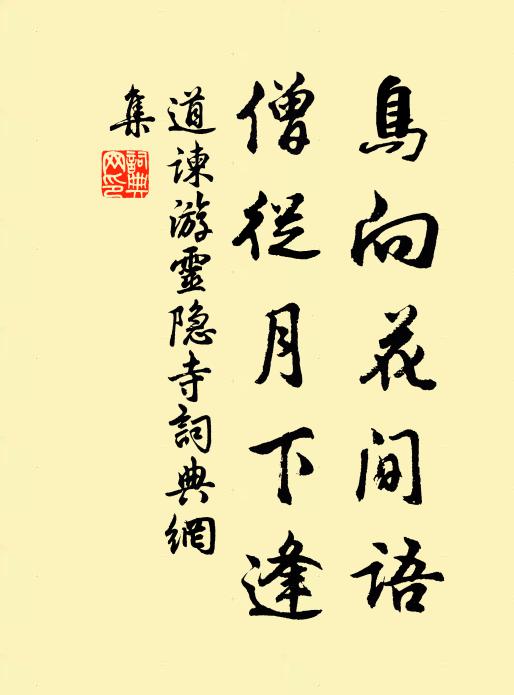 鳥向花間語
僧從月下逢
道諫游靈隱寺詞典網
集
詞典網印